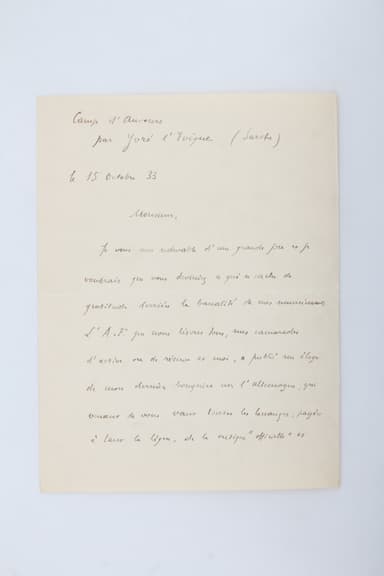 Camp d'Auvours
par Yvré l'Evêque (Sarthe)
le 15 Octobre 33
Monsieur,
Je vous suis redevable d'une grande joie et je
voudrais que vous deviniez ce qui se cache de
gratitude derrière la banalité de mes remerciements.
L'A.F. que nous lisons tous, mes camarades
d'active ou de réserve et moi, a publié un éloge
de mon dernier bouquin sur l'Allemagne, qui
venant de vous vaut toutes les louanges, payées
à tant la ligne, de la critique "officielle" et